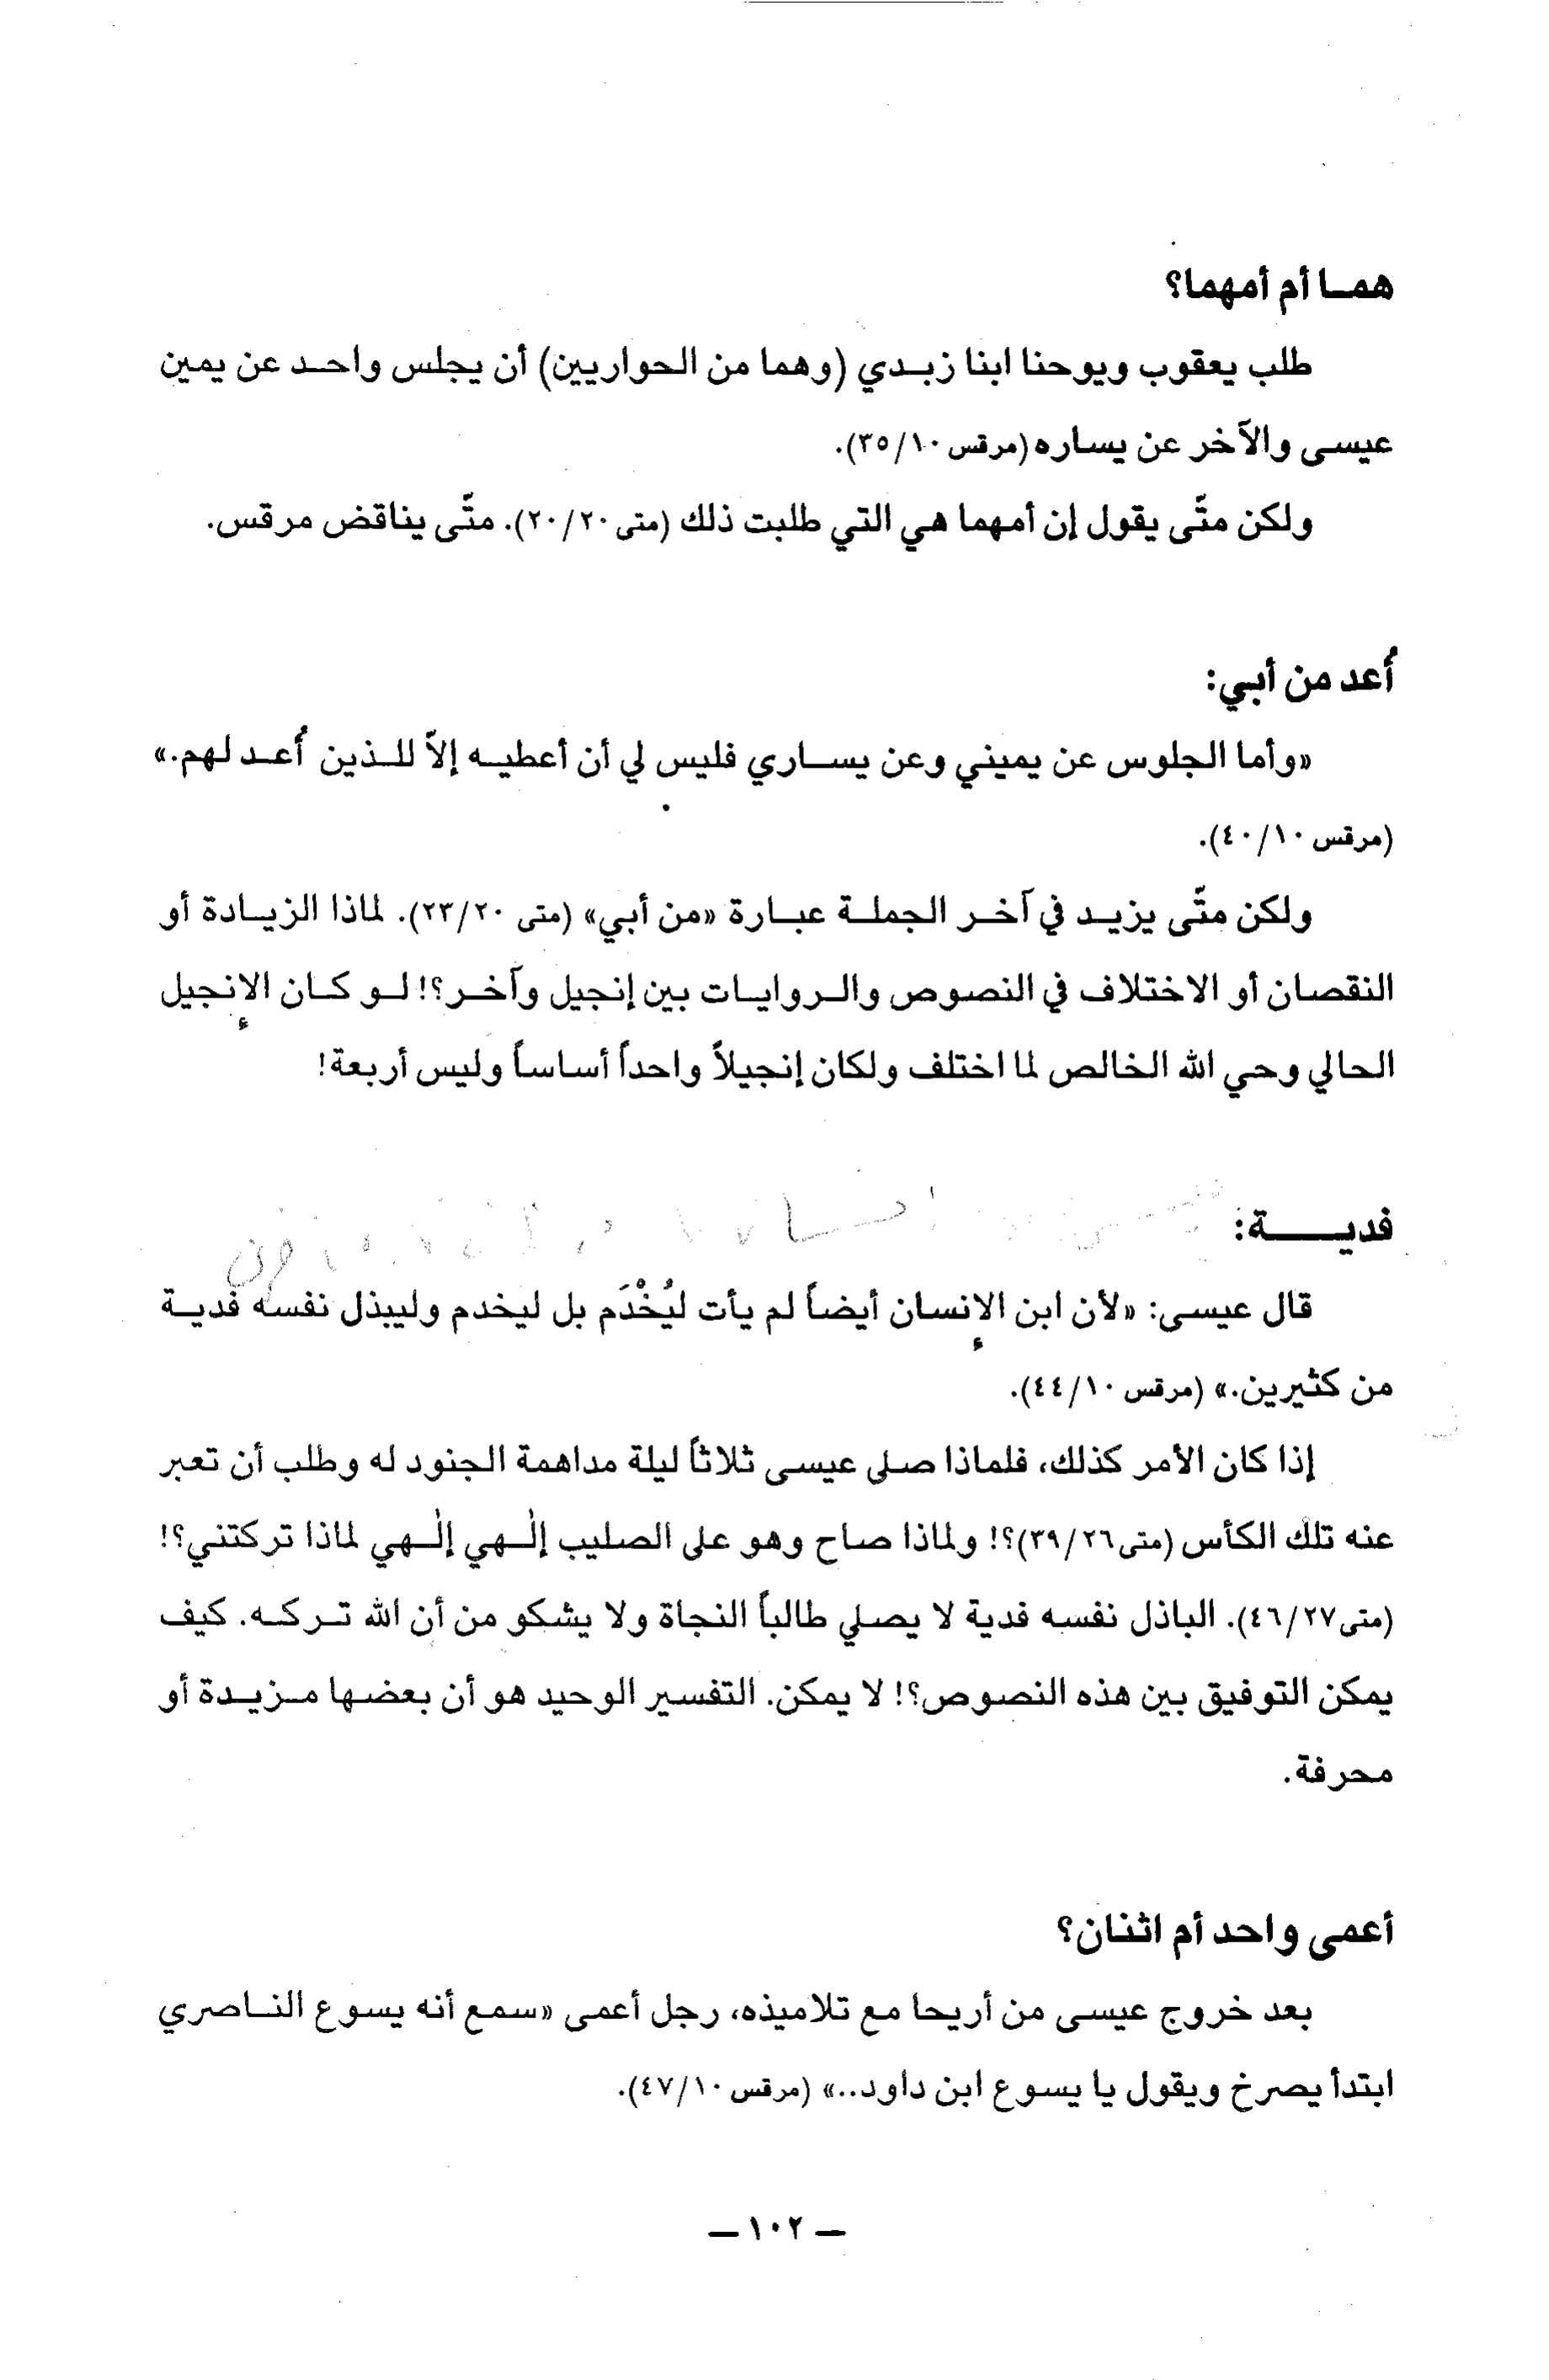 همــا أم أمهما؟
طلب يعقوب ويوحنا ابنا زبـدي (وهما من الحواريين) أن يجلس واحـد عن يمين
عيسى والآخر عن يساره (مرقس ١٠/٣٥).
ولكن متّى يقول إن أمهما هي التي طلبت ذلك (متى ٢٠/٢٠). متّى يناقض مرقس.
أُعد من أبي:
«وأما الجلوس عن يميني وعن يســاري فليس لي أن أعطيــه إلاّ للــذين أُعــد لهم.»
(مرقس ١٠/٤٠).
ولكن متّى يزيــد في آخــر الجملــة عبــارة «من أبي» (متى ٢٠/٢٣). لماذا الزيــادة أو
النقصان أو الاختلاف في النصوص والــروايــات بين إنجيل وآخــر؟! لــو كــان الإنجيل
الحالي وحي الله الخالص لما اختلف ولكان إنجيلاً واحداً أساساً وليس أربعة!
فديـــــة:
قال عيسى: «لأن ابن الإنسان أيضاً لم يأت ليُخْدَم بل ليخدم وليبذل نفسه فديــة
من كثيرين.» (مرقس ١٠/٤٤).
إذا كان الأمر كذلك، فلماذا صلى عيسى ثلاثاً ليلة مداهمة الجنود له وطلب أن تعبر
عنه تلك الكأس (متى ٢٦/٣٩)؟! ولماذا صاح وهو على الصليب إلٰـهي إلٰـهي لماذا تركتني؟!
(متى ٢٧/٤٦). الباذل نفسه فدية لا يصلي طالباً النجاة ولا يشكو من أن الله تــركــه. كيف
يمكن التوفيق بين هذه النصوص؟! لا يمكن. التفسير الوحيد هو أن بعضها مــزيــدة أو
محرفة.
أعمى واحد أم اثنان؟
بعد خروج عيسى من أريحا مع تلاميذه، رجل أعمى «سمع أنه يسوع النــاصري
ابتدأ يصرخ ويقول يا يسوع ابن داود..» (مرقس ١٠/٤٧).
— ١٠٢ —